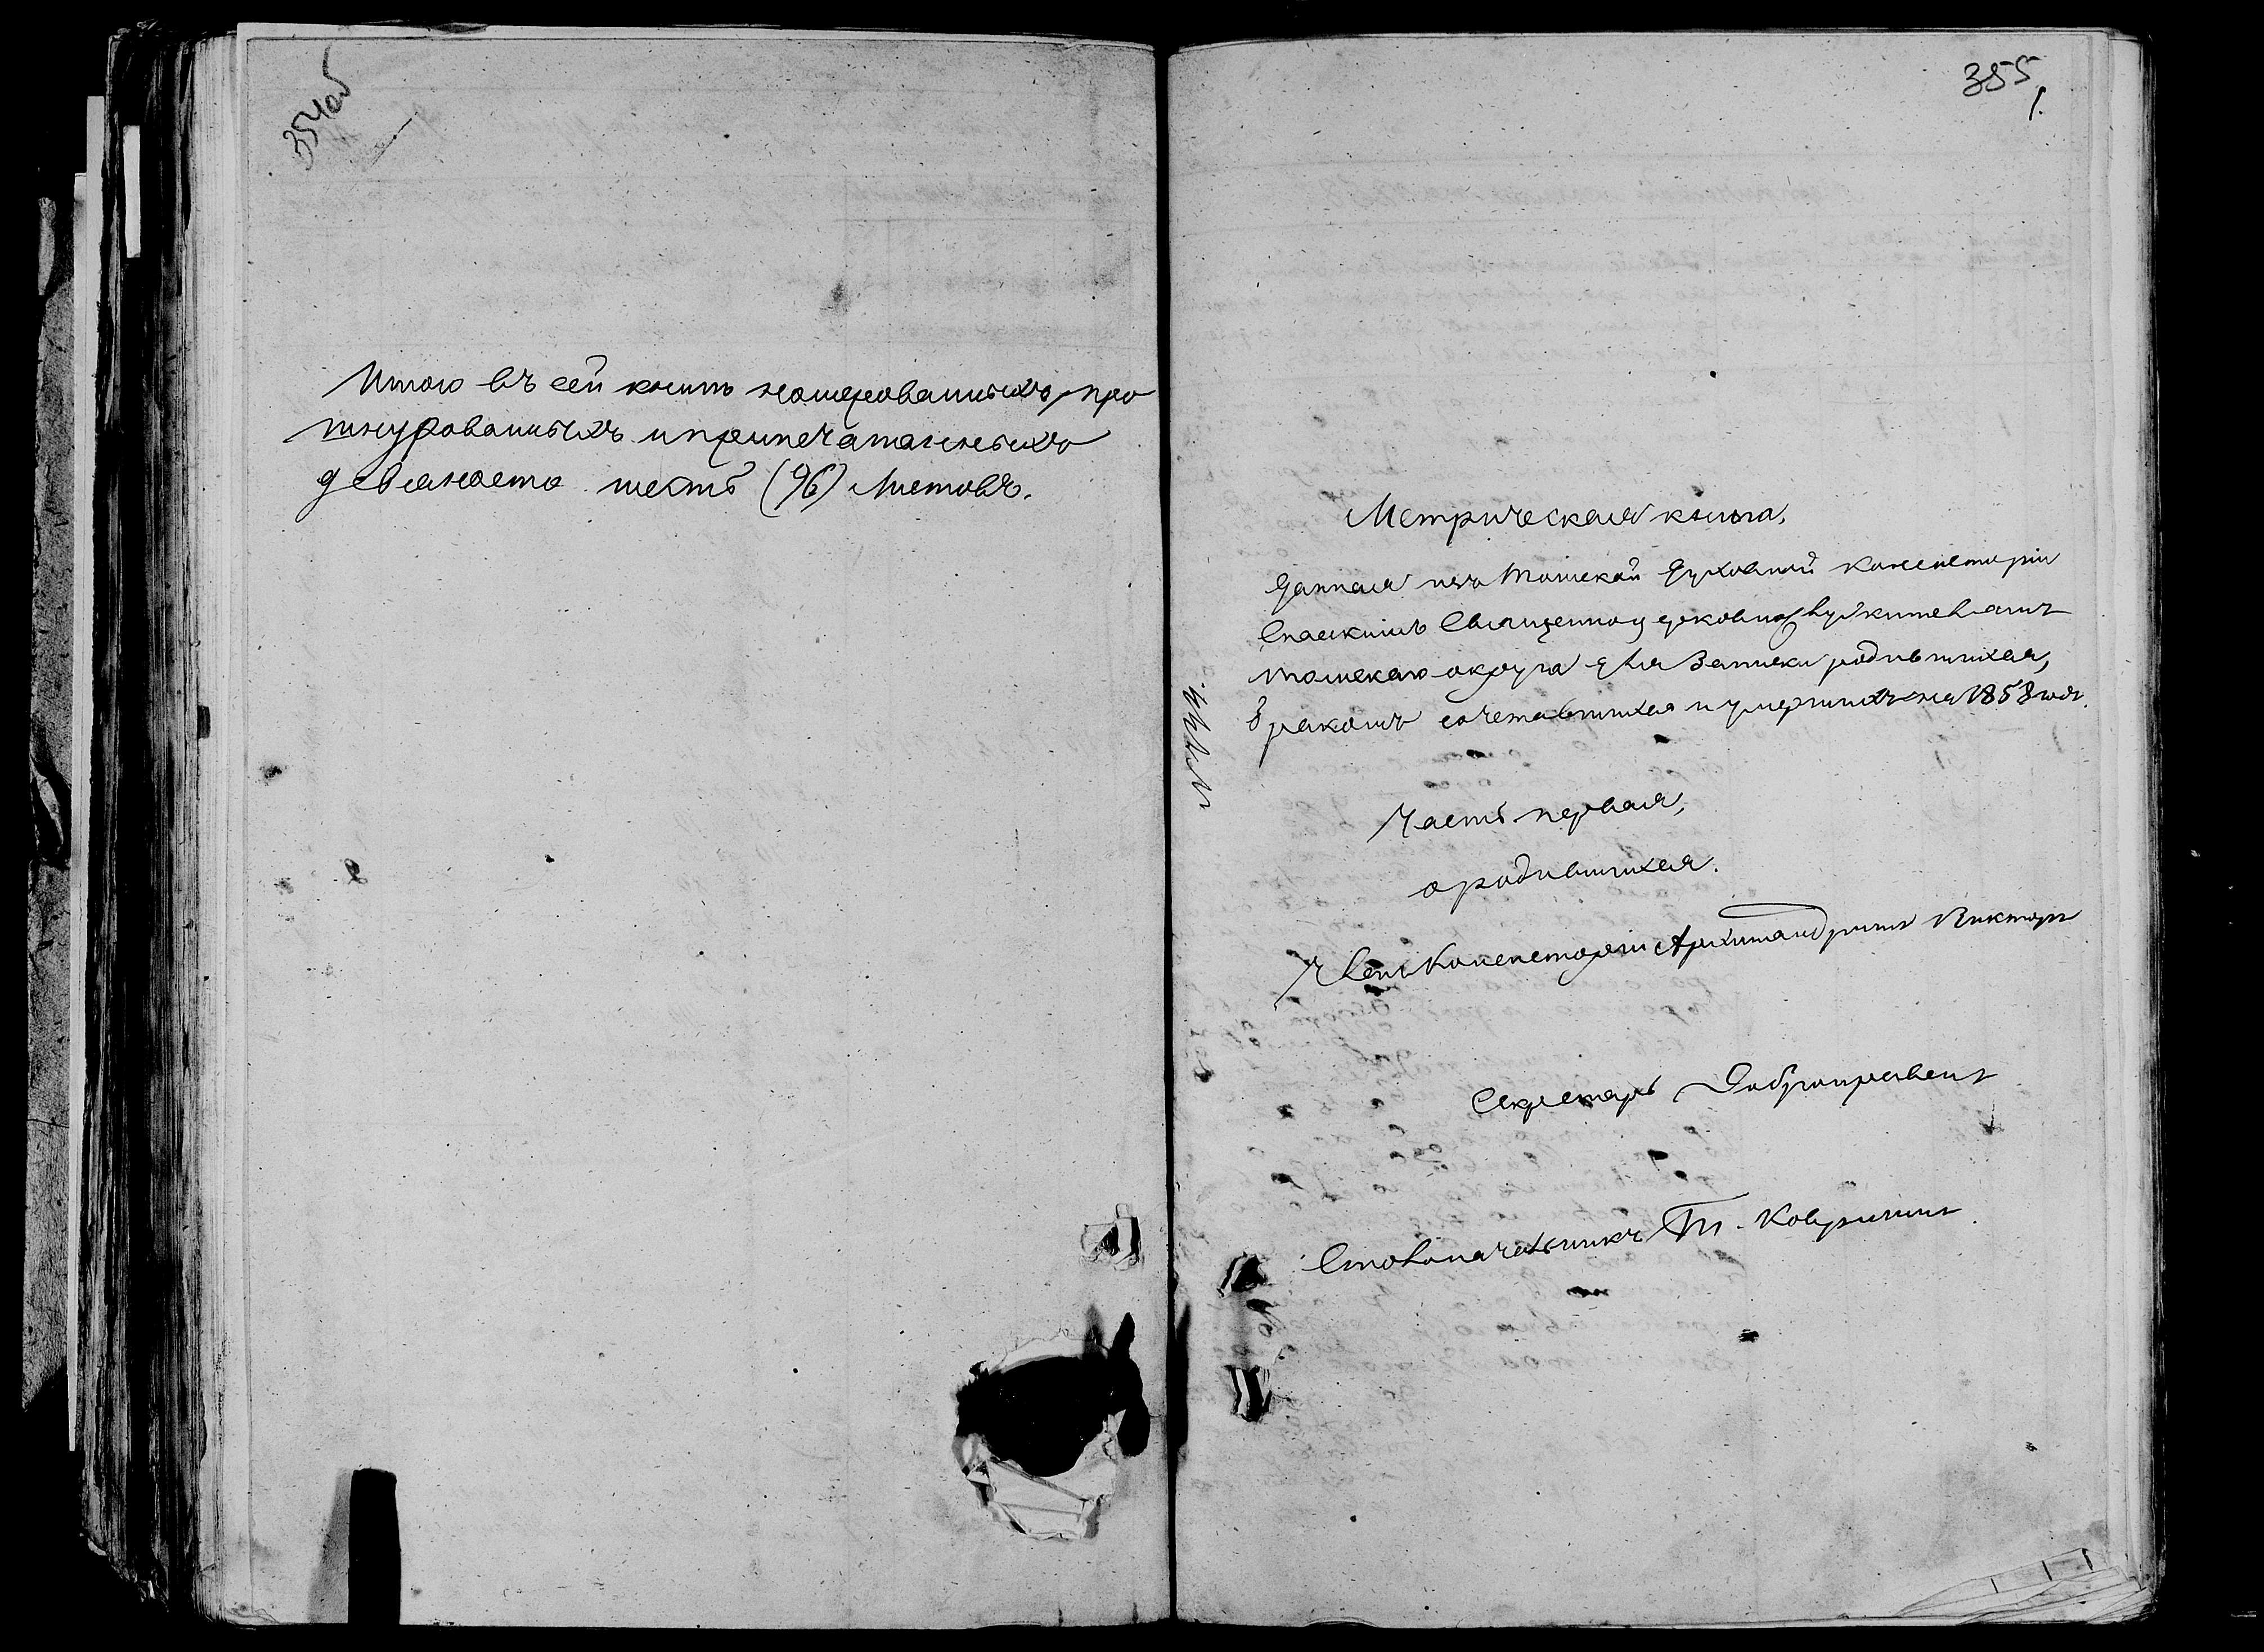 354 об
Итого въ сей книгѣ номерованныхъ, про
шнурованныхъ и припечатанныхъ
девяносто шесть (96) Листовъ.
355
1.
Метрическая книга,
данная изъ Томской Духовной Консисторіи
Спасскимъ Священно церковнослужителямъ
Томскаго округа для Записки родившихся,
бракомъ сочетавшихся и умершихъ на 1858 годъ.
Часть первая,
о родившихся.
Членъ Консисторіи Архимандритъ Викторъ
Секретарь Добронравовъ
Столоначальникъ